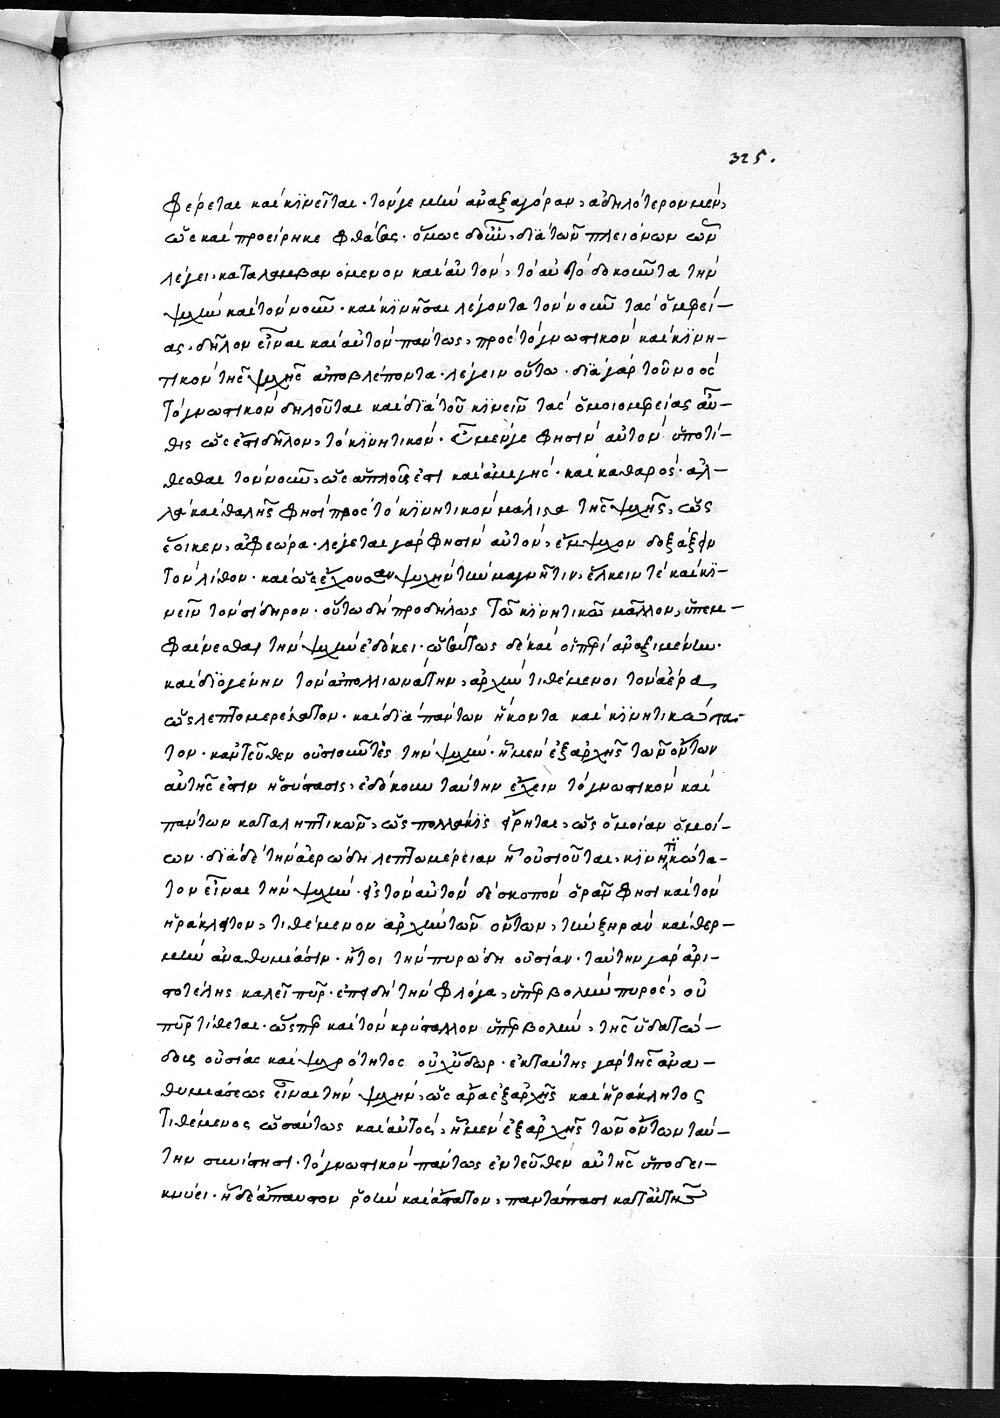 325.
φέρεται καὶ κινεῖται· τόν γε μὴν ἀναξαγόραν, ἀδηλότερον μὲν,
ὡς καὶ προείρηκε φθάσας· ὅμως δ' οὖν, διὰ τῶν πλειόνων ὧν
λέγει, καταλαμβανόμενον καὶ αὐτὸν, τὸ αὐτὸ δοκοῦντα τὴν
ψυχὴν καὶ τὸν νοῦν· καὶ κινῆσαι λέγοντα τὸν νοῦν τὰς ὁμομερεί–
ας, δῆλον εἶναι καὶ αὐτὸν πάντως, πρὸς τὸ γνωστικὸν καὶ κινη–
τικὸν τῆς ψυχῆς ἀποβλέποντα λέγειν οὕτω· διὰ γὰρ τοῦ νοὸς
τὸ γνωστικὸν δηλοῦται καὶ διὰ τοῦ κινεῖν τὰς ὁμοιομερείας αὖ–
θις ὡς ἐπίδηλον, τὸ κινητικόν· νῦν μέν γε φησὶν αὐτὸν ὑποτί–
θεσθαι τὸν νοῦν, ὡς ἁπλοῦς ἐστι καὶ ἀμιγής· καὶ καθαρός· ἀλ–
λὰ καὶ θαλῆς φησὶ πρὸς τὸ κινητικὸν μάλιστα τῆς ψυχῆς, ὡς
ἔοικεν, ἀφεώρα· λέγεται γὰρ φησὶν αὐτὸν, ἔμψυχον δοξάζειν
τὸν λίθον· καὶ ὡς ἔχουσαν ψυχὴν τὴν μαγνῆτιν, ἕλκειν τὲ καὶ κι–
νεῖν τὸν σίδηρον· οὕτω δὴ προδήλως τῷ κινητικῷ μᾶλλον, ὑπεμ–
φαίνεσθαι τὴν ψυχὴν ἐδόκει· ὡσαύτως δὲ καὶ οἱ περὶ ἀναξιμένην·
καὶ διογένην τὸν ἀπολλωνιάτην, ἀρχὴν τιθέμενοι τὸν ἀέρα,
ὡς λεπτομερέστατον· καὶ διὰ πάντων ἥκοντα καὶ κινητικώτα–
τον· κἀντεῦθεν οὐσιοῦντες τὴν ψυχὴν· ᾗ μὲν ἐξ ἀρχῆς τῶν ὄντων
αὐτῆς ἐστιν ἡ σύστασις, ἐδόκουν ταύτην ἔχειν τὸ γνωστικὸν καὶ
πάντων καταληπτικῶν, ὡς πολλάκις εἴρηται, ὡς ὁμοίαν ὁμοί–
ων· διὰ δὲ τὴν ἀερώδη λεπτομέρειαν ᾗ οὐσιοῦται, κινητικώτα–
τον εἶναι τὴν ψυχὴν· εἰς τὸν αὐτὸν δὲ σκοπὸν ὁρᾶν φησι καὶ τὸν
ἡράκλειτον, τιθέμενον ἀρχὴν τῶν ὄντων, τὴν ξηρὰν καὶ θερ–
μὴν ἀναθυμίασιν· ἤτοι τὴν πυρώδη οὐσίαν· ταύτην γὰρ ἀρι–
στοτέλης καλεῖ πῦρ· ἐπειδὴ τὴν φλόγα, ὑπερβολὴν πυρὸς, οὐ
πῦρ τίθεται· ὥσπερ καὶ τὸν κρύσταλλον ὑπερβολὴν, τῆς ὑδατώ–
δους οὐσίας καὶ ψυχρότητος οὐχ ὕδωρ· ἐκ ταύτης γὰρ τῆς ἀνα–
θυμιάσεως εἶναι τὴν ψυχὴν, ὡς ἄρα ἐξ ἀρχῆς καὶ ἡράκλητος
τιθέμενος ὡσαύτως καὶ αὐτὸς, ᾗ μὲν ἐξ ἀρχῆς τῶν ὄντων ταύ–
την συνίστησι· τὸ γνωστικὸν πάντως ἐντεῦθεν αὐτῆς ὑποδει–
κνύει· ᾗ δὲ ἄπαυστον ῥοὴν καὶ ἄστατον, παντάπασι κατ' αὐτῆς